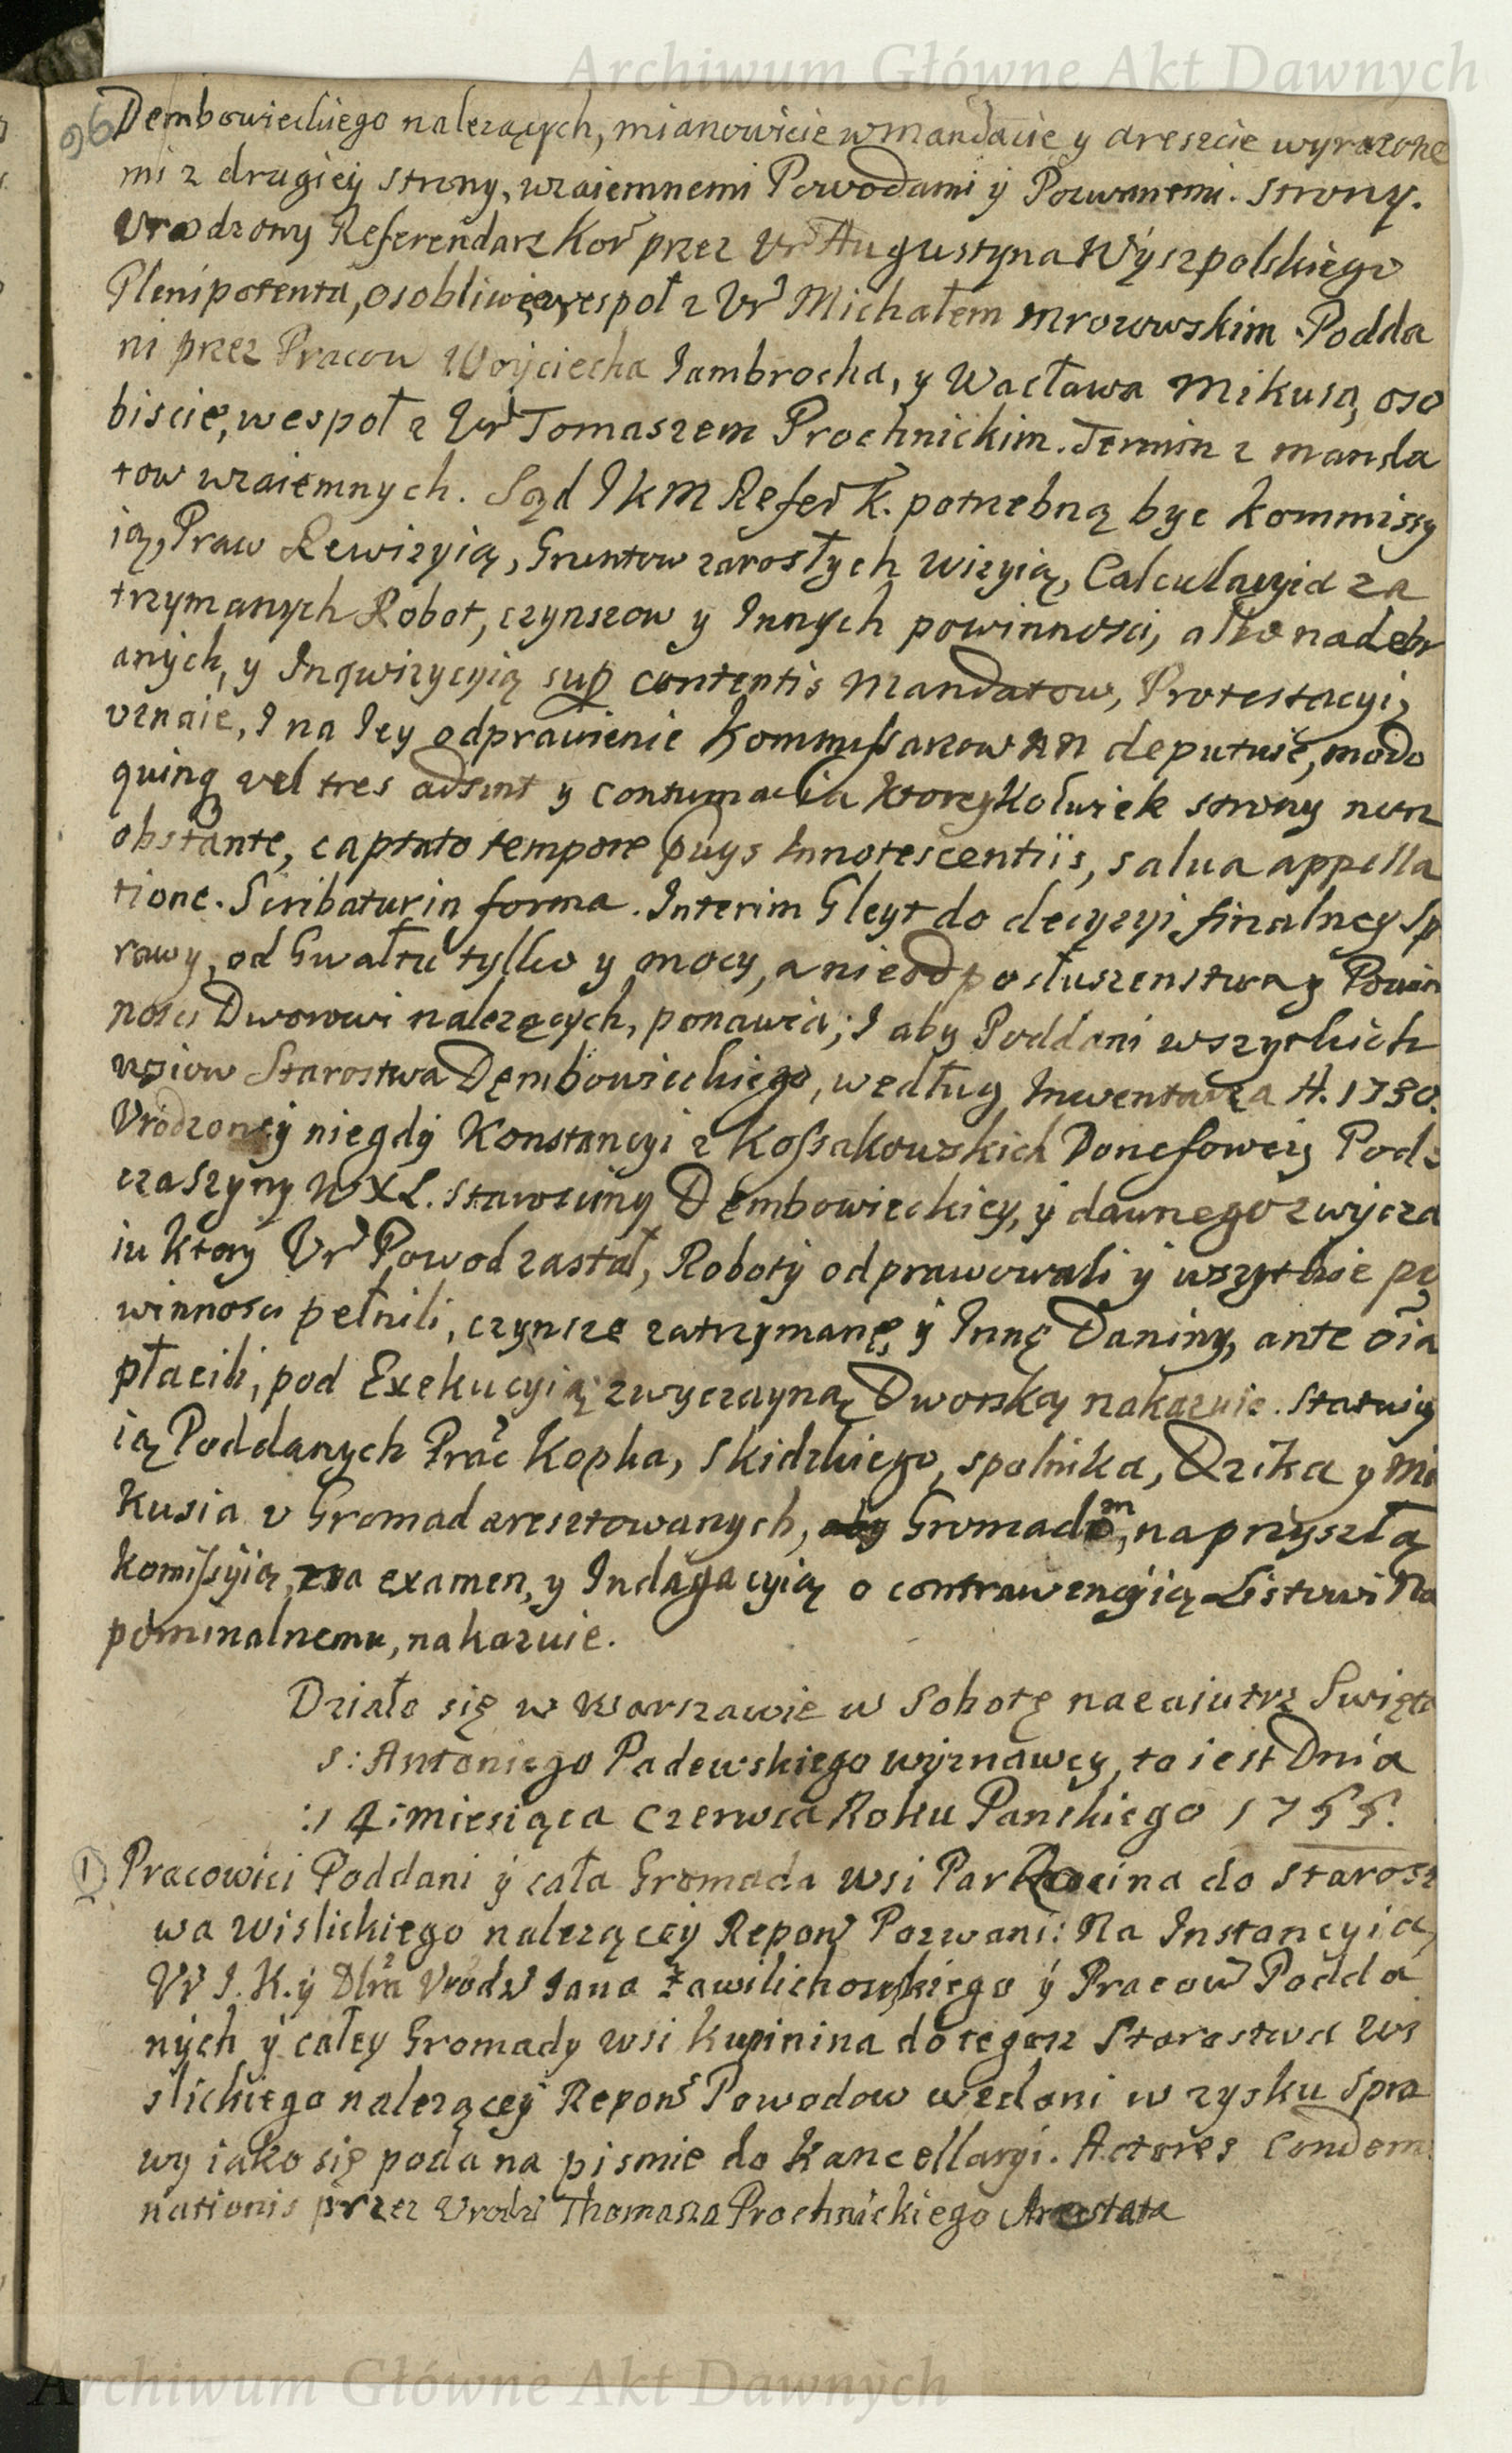 Archiwum Główne Akt Dawnych
96
Dembowieckiego należących, mianowicie w mandacie y areszcie wyrazone
mi z drugiey strony, wzaiemnemi Powodami y Pozwanemi. strony.
Vrodzony Referendarz Kor przez Vr Augustyna Wyszpolskiego
Plenipotenta, osobliwię, wespoł z Vr Michałem Mrozowskim Podda
ni przez Pracow Woyciecha Jambrocha, y Wacława Mikusa, oso
biscie, wespoł z Vr Tomaszem Prochnickim. Termin z manda
tow wzaiemnych. Sąd JKM Refer K. potrzebną byc Kommissy
ią, Praw Rewizyią, Gruntow zarosłych Wizyią, Calculacyią za
trzymanych Robot, czynszow y Innych powinnosci, albo nadebr
anych, y Inqwizycyią sup contentis Mandatow, Protestacyi,
vznaie, I na Iey odprawienie Kommissarzow NN deputuie, modo
quinq vel tres adsint y contumacia ktoreykolwiek strony non
obstante, captato tempore pvys Innotescentiis, salua appella
tione. Scribatur in forma. Interim Gleyt do decyzyi finalney Sp
rawy, od Gwałtu tylko y mocy, a nie od posłuszenstwa y Powin
nosci Dworowi należących, ponawia; I aby Poddani wszystkich
wsiow Starostwa Dęmbowieckiego, według Inwentarza A. 1730.
Vrodzoney niegdy Konstancyi z Kossakowskich Donefowey Pod=
czaszyny WXL. Starosciny Dęmbowieckiey, y dawnego zwycza
iu ktory Vr Powod zastał, Roboty odprawowali y wszytkie po
winnosci pełnili, czynsze zatrzymanę, y Innę Daniny, ante oia
płacili, pod Exekucyią zwyczayną Dworską nakazuie. Statuicy
ią Poddanych Prac Kopka, Skidzkiego, spolnika, Dzika y Mi
kusia v Gromad aresztowanych, aby Gromadom, na przyszłą
Komissyią, na examen, y Indagacyią o contrawencyią Listowi Na
pominalnemu, nakazuie.
Działo się w Warszawie w Sobotę nazaiutrz Swięta
S: Antoniego Padewskiego wyznawcy, to iest Dnia
:14: miesiąca Czerwca Roku Panskiego 1755.
1 Pracowici Poddani y cała Gromada wsi Parkocina do Starost
wa Wislickiego należącey Repon Pozwani: Na Instancyią
W J. K. y Dlra Vrodz Jana Zawilichowskiego y Pracow Podda
nych y całey Gromady wsi Kupinina do tegosz Starostwa Wi
slickiego należącey Repon Powodow wzdani w zysku Spra
wy iako się poda na pismie do Kancellaryi. Actores Condem
nationis przez Vrodz Thomasza Prochnickiego Arestata
Archiwum Główne Akt Dawnych